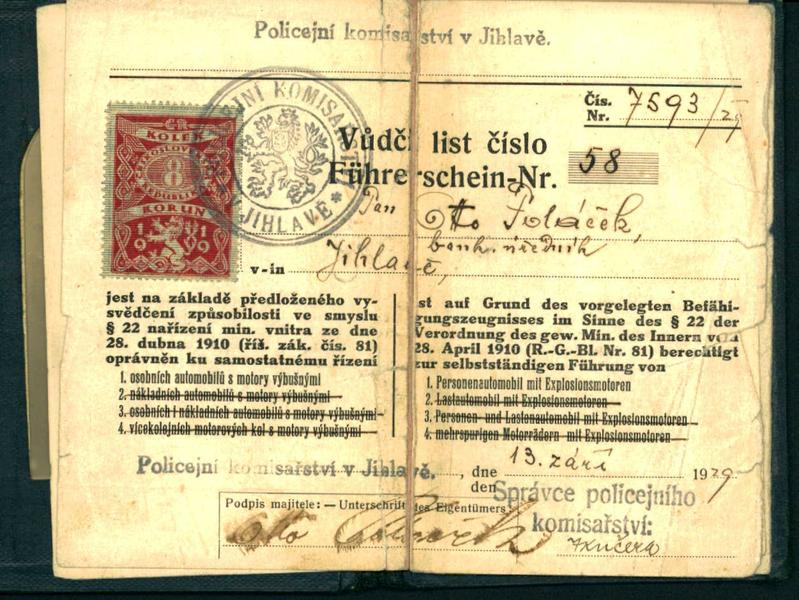 Policejní komisařství v Jihlavě.
Čís.
Nr. 7593/29
Vůdčí list číslo
Führerschein-Nr. 58
Pan Otto Poláček,
bank. úředník
v-in Jihlavě,
ČR
KOLEK
ČESKOSLOVENSKÁ
8
REPUBLIKA
KORUN
1919
POLICEJNÍ KOMISAŘSTVÍ V JIHLAVĚ *
jest na základě předloženého vy-
svědčení způsobilosti ve smyslu
§ 22 nařízení min. vnitra ze dne
28. dubna 1910 (říš. zák. čís. 81)
oprávněn ku samostatnému řízení
1. osobních automobilů s motory výbušnými
2. nákladních automobilů s motory výbušnými
3. osobních i nákladních automobilů s motory výbušnými
4. vícekolejních motorových kol s motory výbušnými
ist auf Grund des vorgelegten Befähi-
gungszeugnisses im Sinne des § 22 der
Verordnung des gew. Min. des Innern vom
28. April 1910 (R.-G.-Bl. Nr. 81) berechtigt
zur selbstständigen Führung von
1. Personenautomobil mit Explosionsmotoren
2. Lastautomobil mit Explosionsmotoren
3. Personen- und Lastenautomobil mit Explosionsmotoren
4. mehrspurigen Motorrädern mit Explosionsmotoren
Policejní komisařství v Jihlavě. , dne 13. září 1929
den
Správce policejního
komisařství:
Kučera
Podpis majitele: — Unterschrift des Eigentümers
Otto Poláček